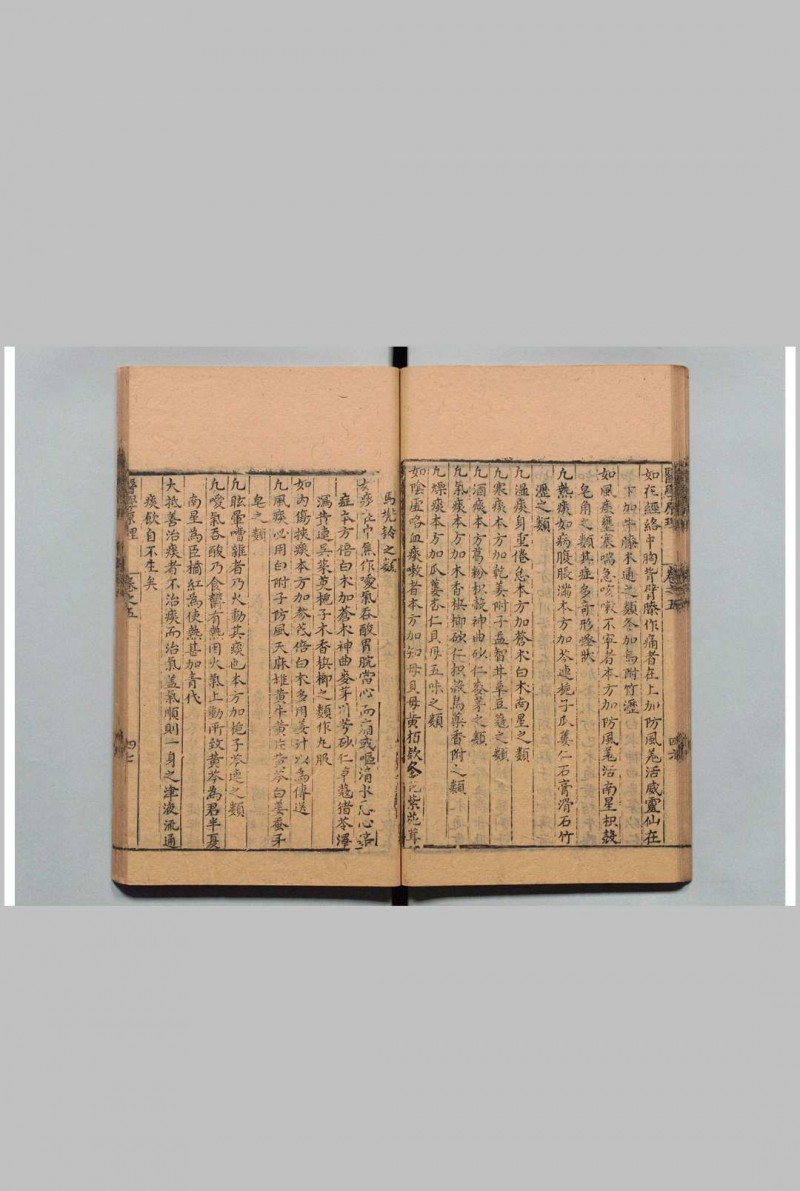 醫學原理 卷之五 四六
如在經絡中胸背臂膝作痛者在上加防風羌活威靈仙在
下加牛膝木通之類冬加烏附竹瀝
如風痰壅塞喘急咳嗽不寧者本方加防風羌活南星枳殼
皂角之類其症多奇形恠狀
凡熱痰如病腹脹滿本方加芩連梔子瓜蔞仁石膏滑石竹
瀝之類
凡濕痰身重倦怠本方加蒼朮白朮南星之類
凡寒痰本方加乾姜附子益智甘草豆蔻之類
凡酒痰本方葛粉枳殼神曲砂仁麥芽之類
凡氣痰本方加木香檳榔砂仁枳殼烏藥香附之類
凡燥痰本方加瓜蔞杏仁貝母五味之類
如陰虛咯血痰嗽者本方加知母貝母黃栢款冬花紫苑茸
馬兠鈴之類
如痰在中焦作噯氣吞酸胃脘當心而痛或嘔清水
症本方倍白朮加蒼朮神曲麥芽川芎砂仁草蔻猪苓澤
瀉黃連吳茱萸梔子木香檳榔之類作丸服
如內傷挾痰本方加參芪倍白朮多用姜汁以為傳送
凡風痰必用白附子防風天麻雄黃牛黃片芩白姜蚕牙
皂之類
凡眩暈嘈雜者乃火動其痰也本方加梔子芩連之類
凡噯氣吞酸乃食鬱有熱因火氣上動所致黃芩為君半夏
南星為臣橘紅為使熱甚加青代
大抵善治痰者不治痰而治氣蓋氣順則一身之津液流通
痰飲自不生矣
醫學原理 卷之五 四七